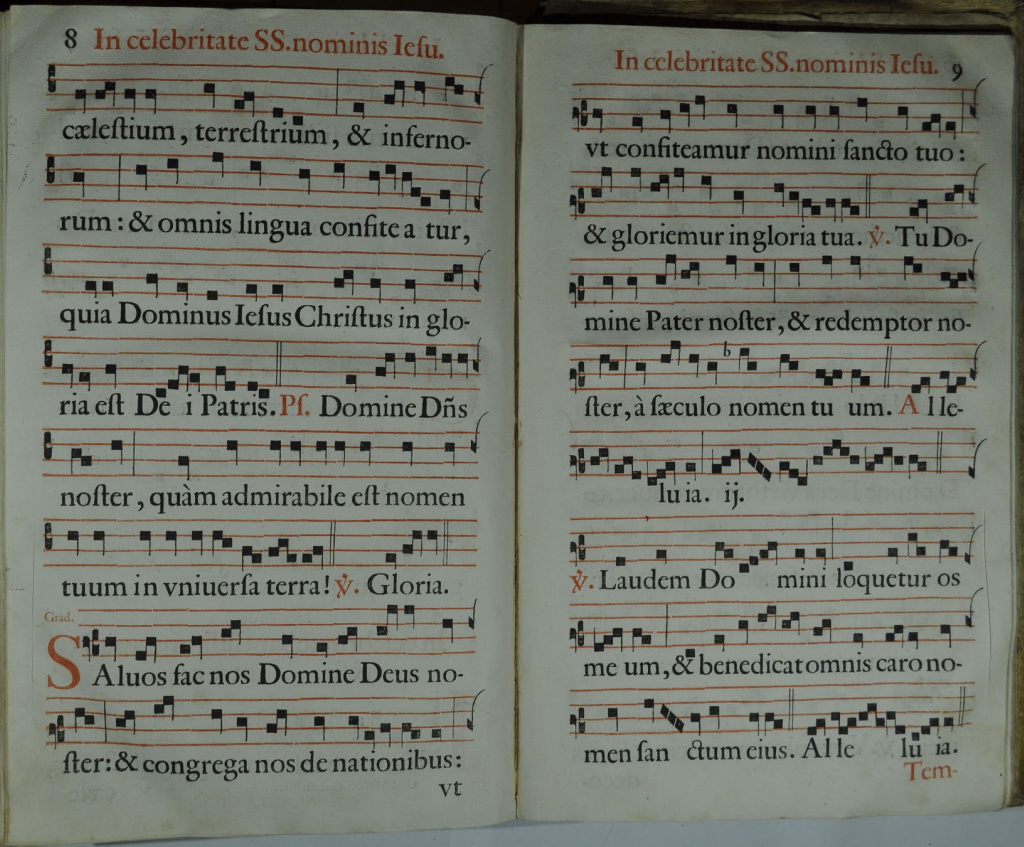 8 In celebritate SS.nominis Iesu.
cælestium, terrestrium, & inferno-
rum: & omnis lingua confite a tur,
quia Dominus Iesus Christus in glo-
ria est De i Patris. Ps. Domine Dñs
noster, quàm admirabile est nomen
tuum in vniuersa terra! ℣. Gloria.
Grad.
SAluos fac nos Domine Deus no-
ster: & congrega nos de nationibus:
vt
In celebritate SS.nominis Iesu. 9
vt confiteamur nomini sancto tuo:
& gloriemur in gloria tua. ℣. Tu Do-
mine Pater noster, & redemptor no-
b
ster, à sæculo nomen tu um. A l le-
lu ia. ij.
℣. Laudem Do mini loquetur os
me um, & benedicat omnis caro no-
men san ctum eius. Al le lu ia.
Tem-